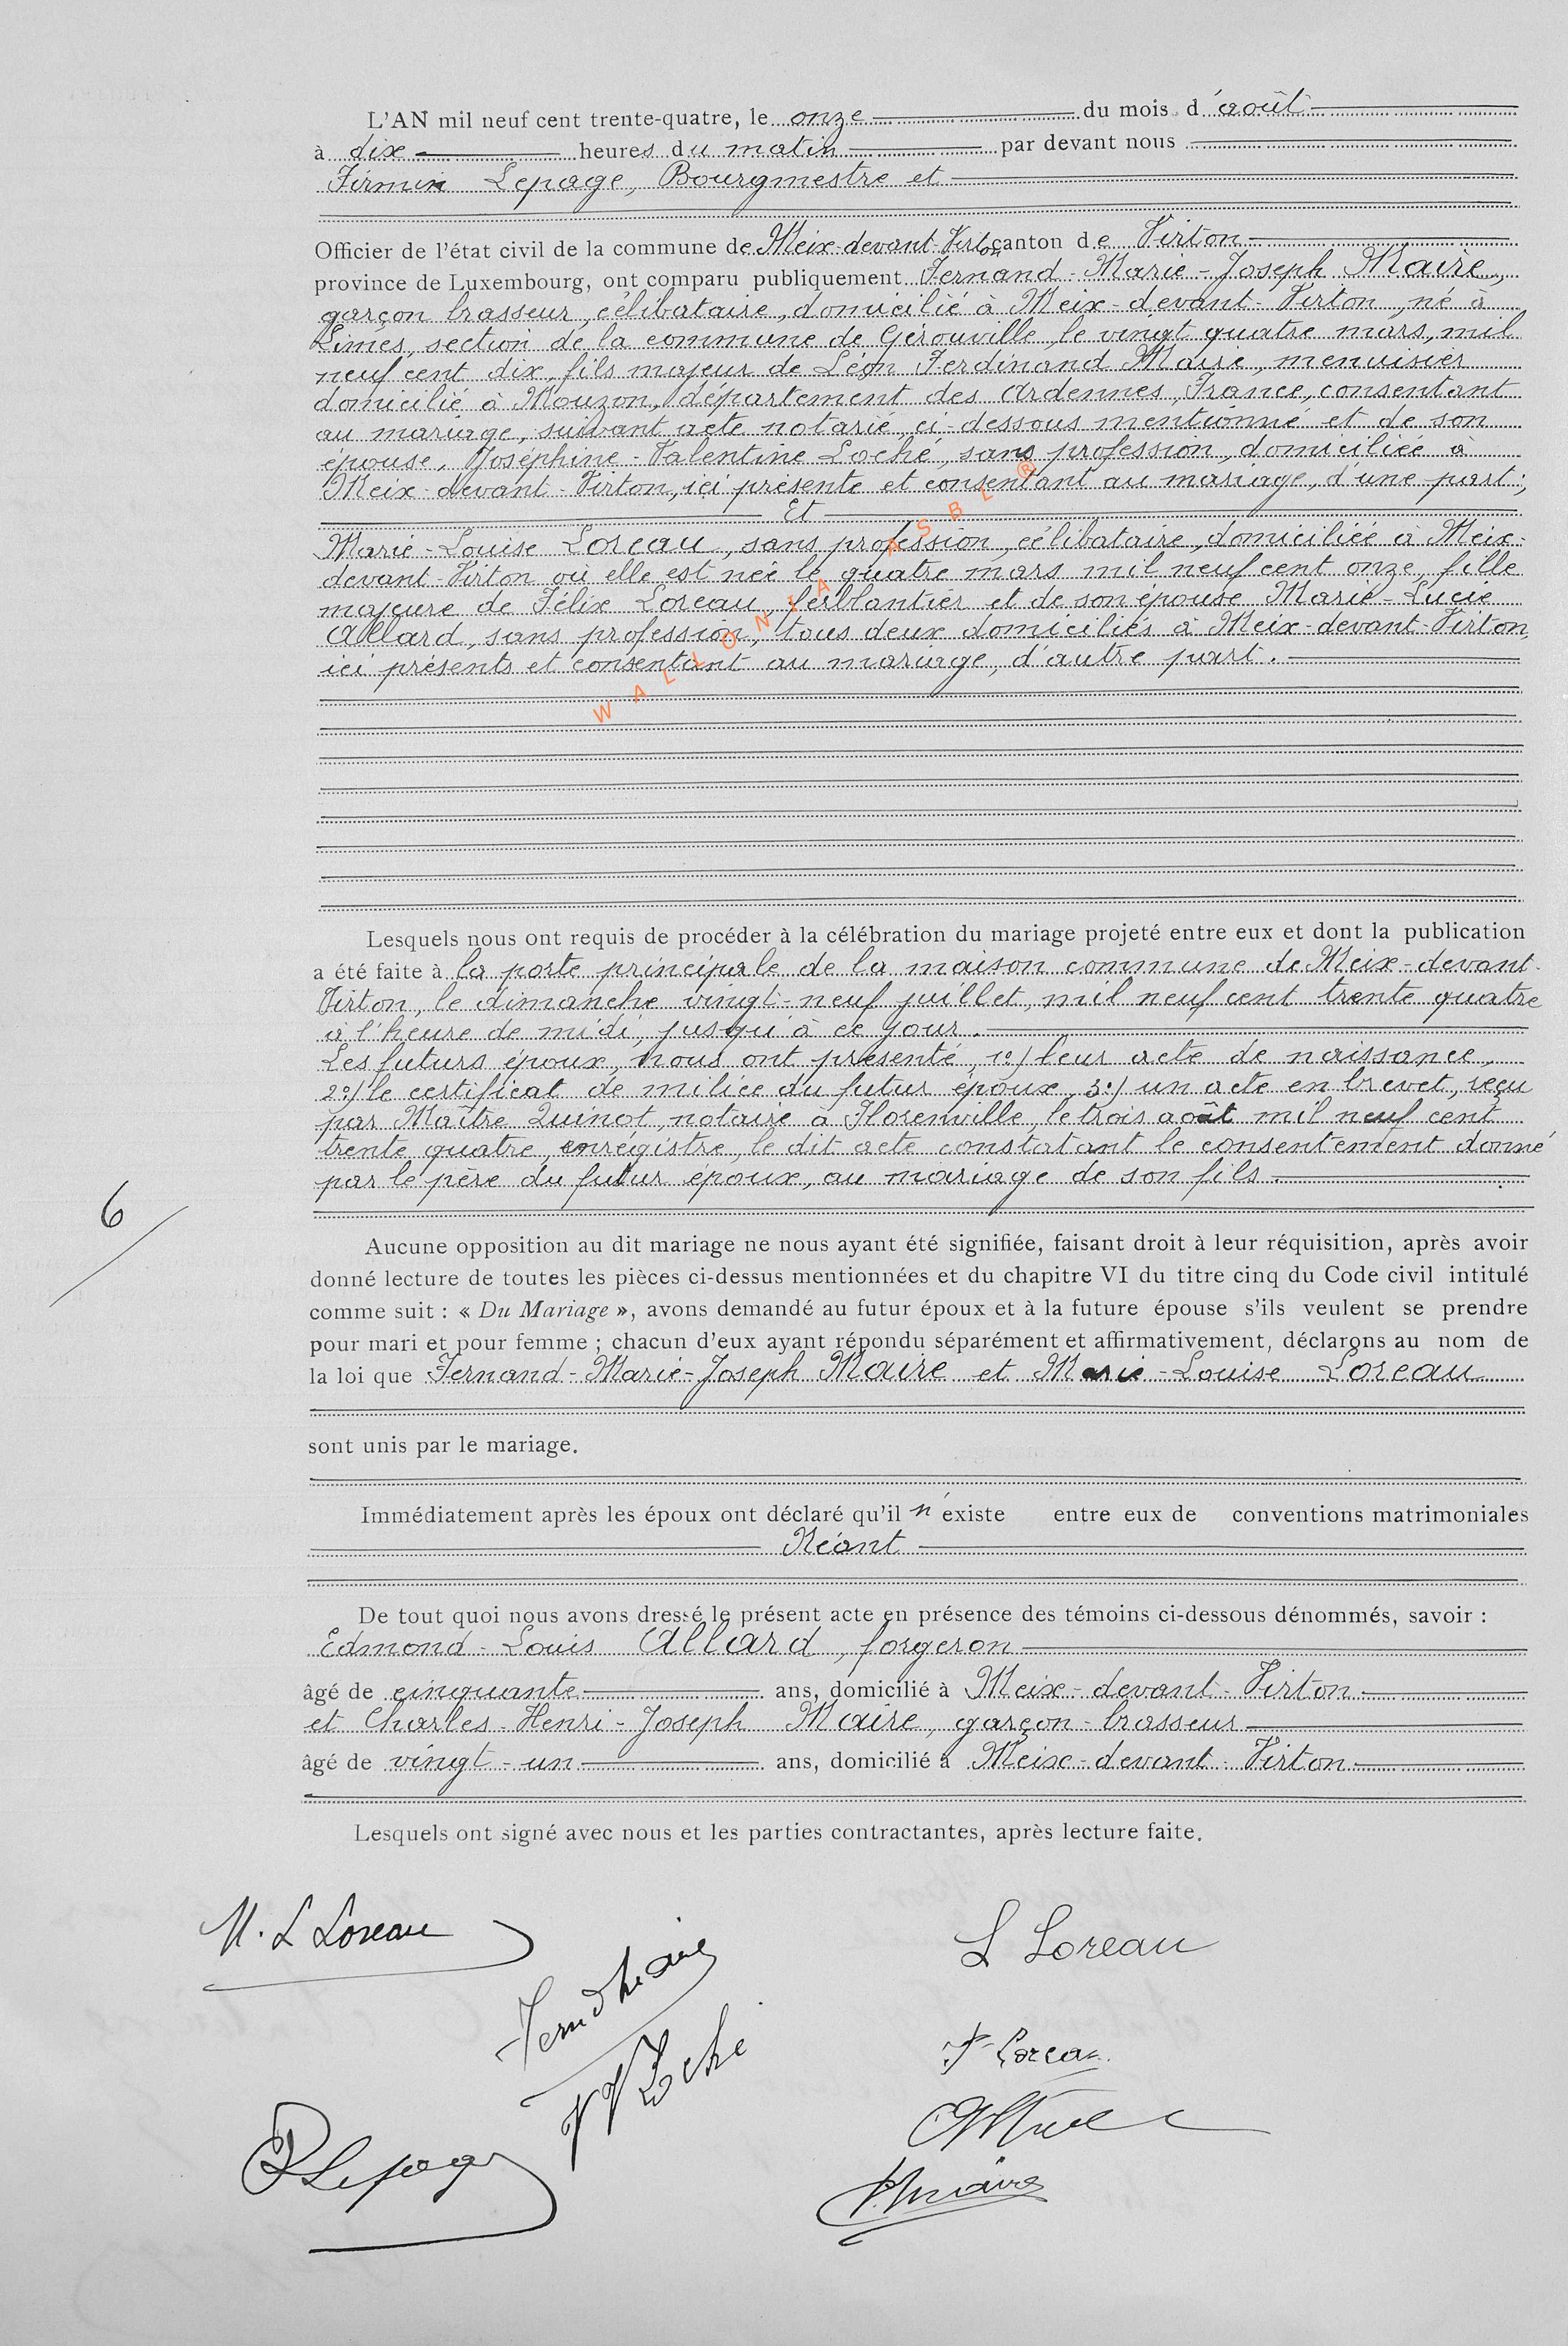 L'AN mil neuf cent trente-quatre, le onze du mois d'août
à dix heures du matin par devant nous
Firmin Lepage, Bourgmestre et
Officier de l'état civil de la commune de Meix-devant-Virton canton de Virton
province de Luxembourg, ont comparu publiquement Fernand-Marie-Joseph Maire,
garçon brasseur, célibataire, domicilié à Meix-devant-Virton, né à
Limes, section de la commune de Gérouville, le vingt quatre mars, mil
neuf cent dix, fils majeur de Léon Ferdinand Maire, menuisier
domicilié à Mouzon, département des Ardennes, France, consentant
au mariage, suivant acte notarié, ci-dessous mentionné et de son
épouse, Joséphine-Valentine Loché, sans profession, domiciliée à
Meix-devant-Virton, ici présente et consentant au mariage, d'une part;
Et
Marie-Louise Loreau, sans profession, célibataire, domiciliée à Meix-
devant-Virton où elle est née le quatre mars mil neuf cent onze, fille
majeure de Félix Loreau, ferblantier et de son épouse Marie-Lucie
Allard, sans profession, tous deux domiciliés à Meix-devant-Virton,
ici présents et consentant au mariage, d'autre part.
WALLONIA ASBL ®
Lesquels nous ont requis de procéder à la célébration du mariage projeté entre eux et dont la publication
a été faite à la porte principale de la maison commune de Meix-devant-
Virton, le dimanche vingt-neuf juillet, mil neuf cent trente quatre
à l'heure de midi, jusqu'à ce jour.
Les futurs époux, nous ont présenté, 1°) leur acte de naissance,
2°) le certificat de milice du futur époux, 3°) un acte en brevet, reçu
par Maître Quinot, notaire à Florenville, le trois août mil neuf cent
trente quatre, enrégistré, le dit acte constatant le consentement donné
par le père du futur époux, au mariage de son fils.
6
Aucune opposition au dit mariage ne nous ayant été signifiée, faisant droit à leur réquisition, après avoir
donné lecture de toutes les pièces ci-dessus mentionnées et du chapitre VI du titre cinq du Code civil intitulé
comme suit : « Du Mariage », avons demandé au futur époux et à la future épouse s'ils veulent se prendre
pour mari et pour femme ; chacun d'eux ayant répondu séparément et affirmativement, déclarons au nom de
la loi que Fernand-Marie-Joseph Maire et Marie-Louise Loreau
sont unis par le mariage.
Immédiatement après les époux ont déclaré qu'il n'existe entre eux de conventions matrimoniales
Néant
De tout quoi nous avons dressé le présent acte en présence des témoins ci-dessous dénommés, savoir :
Edmond-Louis Allard, forgeron
âgé de cinquante ans, domicilié à Meix-devant-Virton
et Charles-Henri-Joseph Maire, garçon-brasseur
âgé de vingt-un ans, domicilié à Meix-devant-Virton
Lesquels ont signé avec nous et les parties contractantes, après lecture faite.
M. L Loreau
L Loreau
Fernd Maire
F Loreau
J V Loché
Lepage
Maire